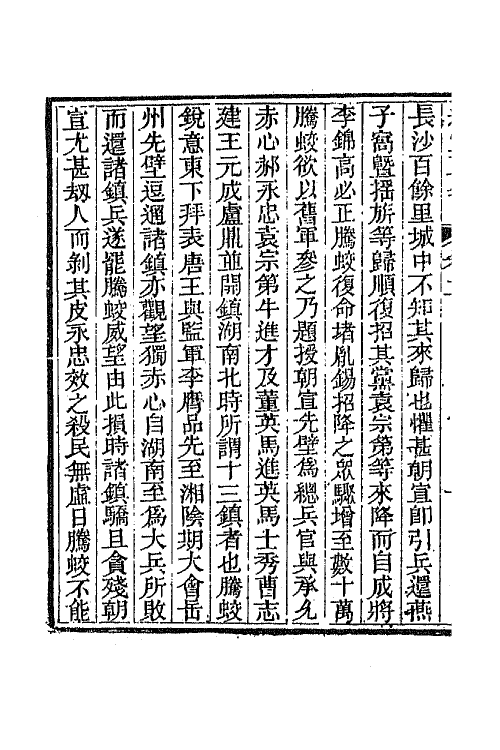 長沙百餘里城中不知其來歸也懼甚朝宣卽引兵還燕
子窩曁揺旂等歸順復招其黨袁宗第等來降而自成將
李錦高必正騰蛟復命堵胤錫招降之眾驟增至數十萬
騰蛟欲以舊軍參之乃題授朝宣先壁爲總兵官與承允
赤心郝永忠袁宗第牛進才及董英馬進英馬士秀曹志
建王元成盧鼎並開鎮湖南北時所謂十三鎮者也騰蛟
銳意東下拜表唐王與監軍李膺品先至湘陰期大會岳
州先壁逗遛諸鎮亦觀望獨赤心自湖南至爲大兵所敗
而還諸鎮兵遂罷騰蛟威望由此損時諸鎮驕且貪殘朝
宣尤甚刼人而剝其皮永忠效之殺民無虛日騰蛟不能